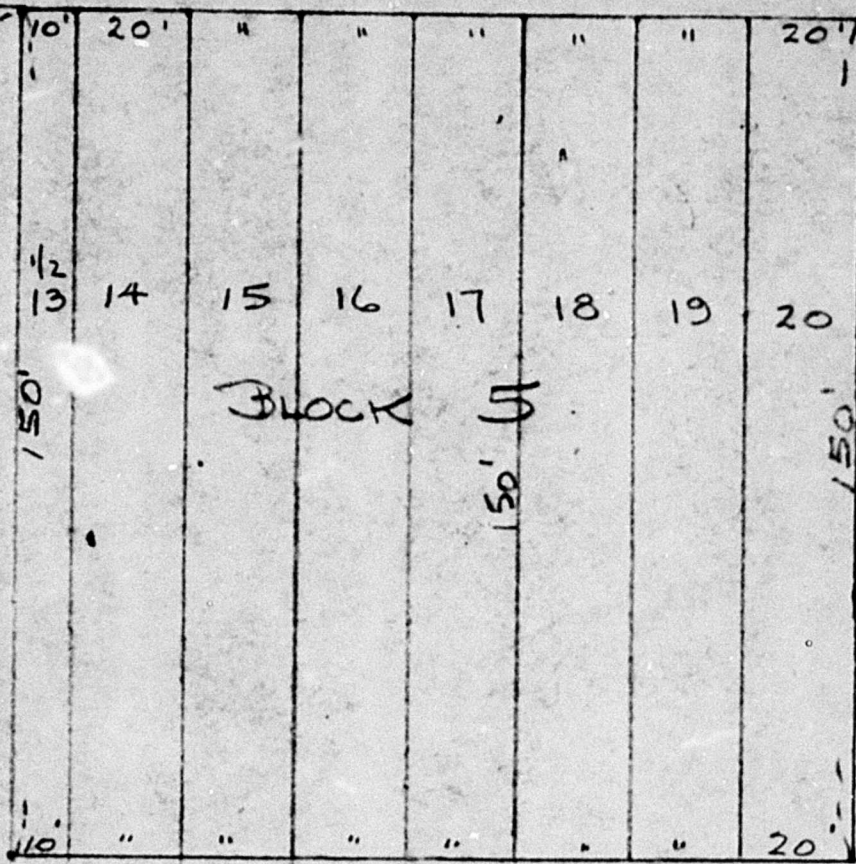 10' 20' " " " " " 20'
1/2
13 14 15 16 17 18 19 20
BLOCK 5
150' 150' 150'
10' " " " " " " 20